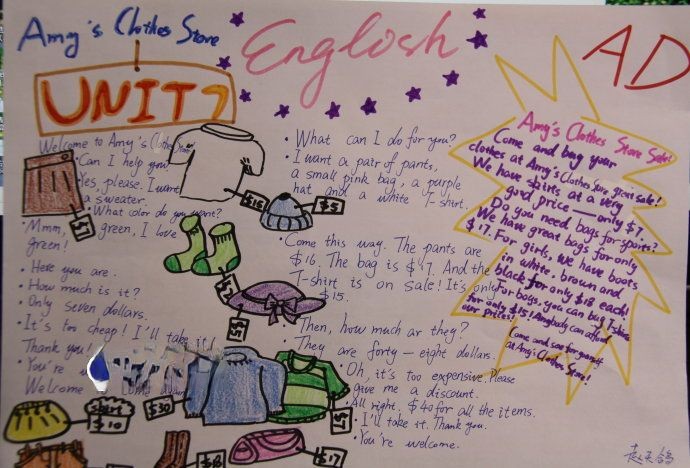 Amy's Clothes Store
Englosh
AD
UNIT 7
Welcome to Amy's Clothes
Can I help you
Yes, please. I want
a sweater.
What color do you want?
Mmm, green, I love
green!
Here you are.
How much is it?
Only seven dollars.
It's too cheap! I'll take it!
Thank you!
You're
Welcome
$7
$15
$5
What can I do for you?
I want a pair of pants,
a small pink bag, a purple
hat and a white T-shirt.
Come this way. The pants are
$16. The bag is $17. And the
T-shirt is on sale! It's only
$15.
Then, how much ar they?
They are forty-eight dollars.
Oh, it's too expensive. Please
give me a discount.
All right. $40 for all the items.
I'll take it. Thank you.
You're welcome.
skirt
$10
$30
$17
Amy's Clothes Store Sale!
Come and buy your
clothes at Amy's Clothes Store great sale!
We have skirts at a very
good price — only $7.
Do you need bags for sports?
We have great bags for only
$17. For girls. We have boots
in white. brown and
black for only $18 each!
For boys, you can buy T-shirts
for only $15! Anybody can afford
our prices!
Come and see for yourself
at Amy's Clothes Store!